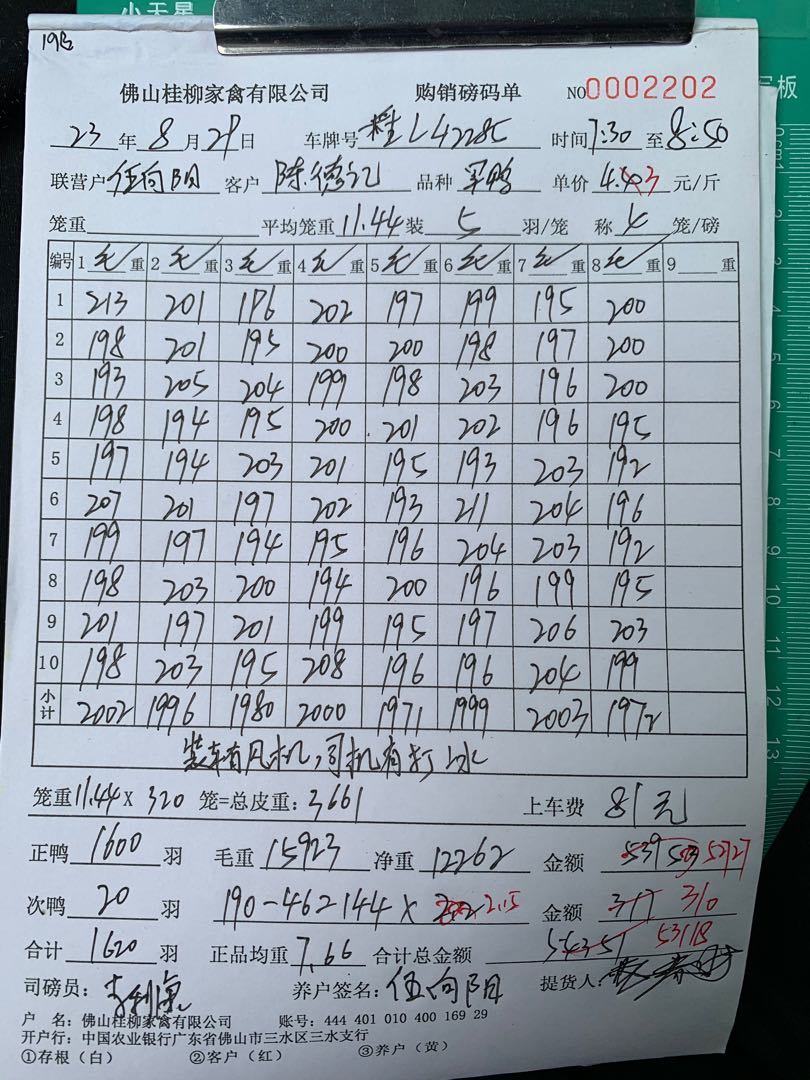 小天星
写板
198
佛山桂柳家禽有限公司 购销磅码单 NO0002202
23 年 8 月 29 日 车牌号 桂L42285 时间 7:30 至 8:50
联营户 伍向阳 客户 陈德记 品种 军鸭 单价 4.43 元/斤
笼重 平均笼重 11.44 装 5 羽/笼 称 4 笼/磅
编号 1 毛 重 2 毛 重 3 毛 重 4 毛 重 5 毛 重 6 毛 重 7 毛 重 8 毛 重 9 重
1 213 201 196 202 197 199 195 200
2 198 201 195 200 200 198 197 200
3 193 205 204 199 198 203 196 200
4 198 194 195 200 201 202 196 195
5 197 194 203 201 195 193 203 192
6 207 201 197 202 193 211 204 196
7 199 197 194 195 196 204 203 192
8 198 203 200 194 200 196 199 195
9 201 197 201 199 195 197 206 203
10 198 203 195 208 196 196 204 199
小计 2002 1996 1980 2000 1971 1999 2003 1972
装车有风机,司机有打水
笼重 11.44 X 320 笼=总皮重: 3661 上车费 81元
正鸭 1600 羽 毛重 15923 净重 12262 金额 53953 52727
次鸭 20 羽 190-46=144 X 2.15 金额 317 310
合计 1620 羽 正品均重 7.66 合计总金额 54351 53118
司磅员: 养户签名: 伍向阳 提货人:
户 名: 佛山桂柳家禽有限公司 账号: 444 401 010 400 169 29
开户行: 中国农业银行广东省佛山市三水区三水支行
①存根(白) ②客户(红) ③养户(黄)